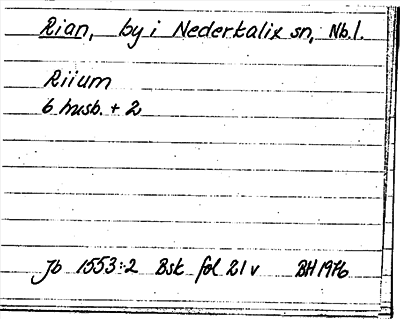 Rian, by i Nederkalix sn, Nb.l.
Riium
6 husb. + 2
Jb 1553:2 Bsk fol 21v BH 1976